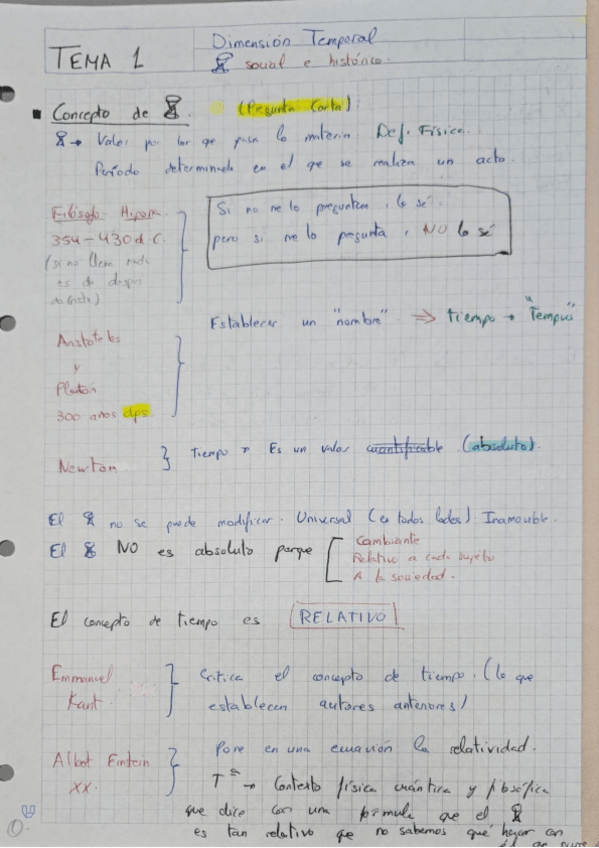 TEMA 1
Dimensión Temporal
social e histórico.
Concepto de (Pegunta Corta)
→ Valor por lor que pasa la materia Def. Física.
Período determinado en el que se realiza un acto.
Filósofo Hipona
354 – 430 d.C.
(si no lleva nada
es de despues
de Cristo)
Si no me lo preguntan, lo sé,
pero si me lo pregunta, NO lo sé
Establecer un "nombre" ⇒ tiempo → "Tempus"
Aristoteles
y
Platón
300 años dps.
Newton
Tiempo → Es un valor cuantificable (absoluto).
El no se puede modificar. Universal (en todos lados). Inamovible.
El NO es absoluto porque
Cambiante
Relativo a cada sujeto
A la sociedad.
El concepto de tiempo es RELATIVO
Emmanuel
Kant
Critica el concepto de tiempo. (lo que
establecen autores anteriores)
Albert Einstein
XX.
Pone en una ecuación la relatividad.
Tª → Contexto física cuántica y filosófica
que dice con una fórmula que el
es tan relativo que no sabemos qué hacer con